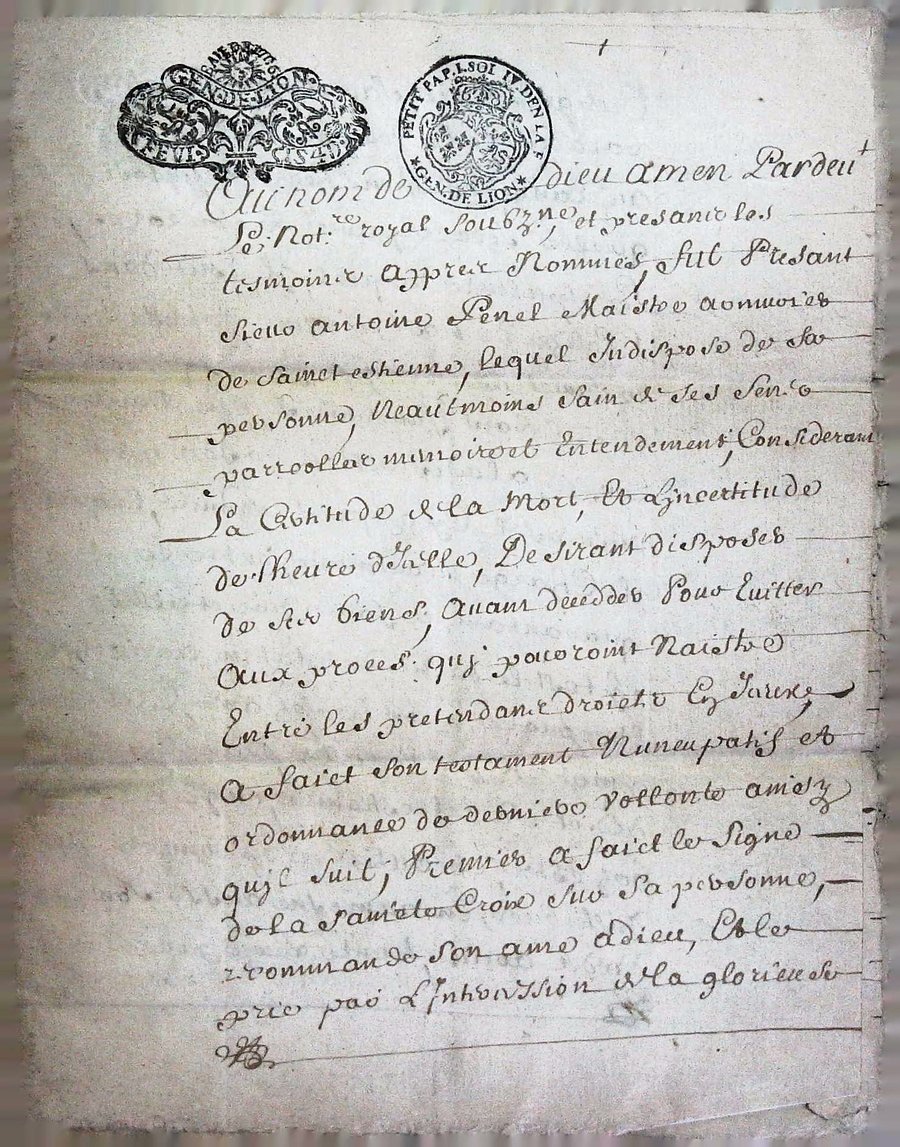 GEN.DE.LION
PETIT PAP. 1. SOL IV. DEN LA F
★ GEN. DE LION ★
Au nom de dieu amen Pardevt
Le Not.re royal soubz.ne, et presanr les
tesmoinr appres Nommes, fut Presant
sieur antoine Penel Maistre armurier
de sainct estienne, lequel Indispose de sa
personne, Neautmoins sain de ses sens
parrolles memoire et Entendement, Considerant
La Certitude de la Mort, Et L'incertitude
de l'heure d'Icelle, Desirant disposer
de ses biens, avant decedder Pour Evitter
aux proces quj pouroint Naistre
Entre les pretendans droicts En Iceux,
a faict son testament Nuncupatif et
ordonnance de derniere vollonte ainsy
qujl suit, Premier a faict le signe
de la saincte Croix sur sa personne,
recommande son ame a dieu, Et le
prie par L'Intercession de la glorieuse